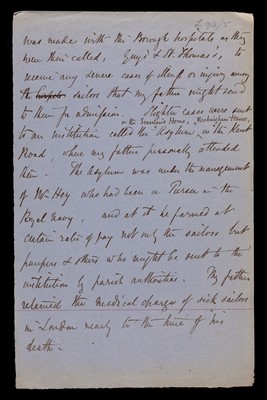 was made with the Borough hospitals as they
were then called, Guy's & St. Thomas's, to
receive any severe cases of illness or injury among
the hospita sailors that my father might send
to them for admission. Slighter cases were sent
or the Sailor's Home, Buckingham House,
to an institution called the Asylum, in the Kent
Road, where my father personally attended
them. The Asylum was under the management
of Mr Hoy who had been a Purser in the
Royal Navy, and at it he farmed at
certain rates of pay not only the sailors but
paupers & others who might be sent to the
institution by parish authorities. My father
retained the medical charge of sick sailors
in London nearly to the time of his
death.